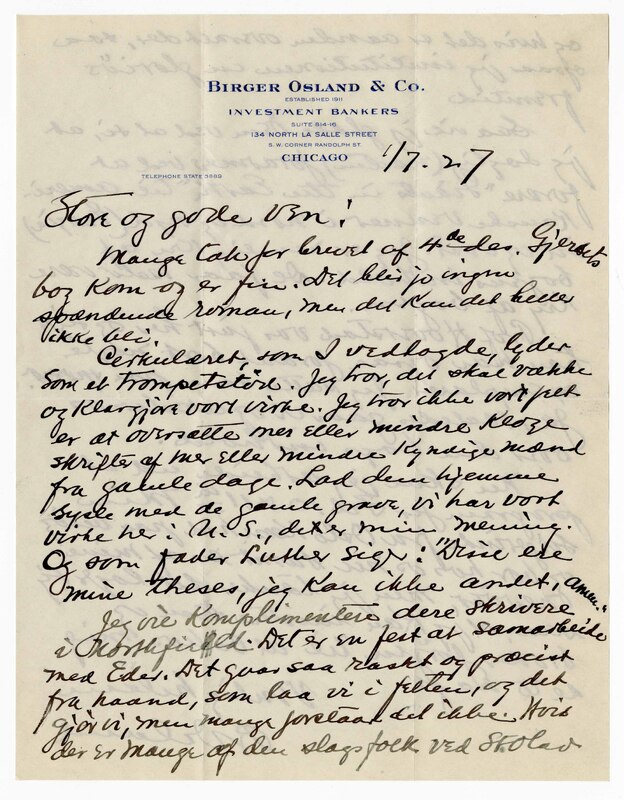 BIRGER OSLAND & CO.
ESTABLISHED 1911
INVESTMENT BANKERS
SUITE 814-16
134 NORTH LA SALLE STREET
S. W. CORNER RANDOLPH ST.
CHICAGO
TELEPHONE STATE 3889
1/7.27
Store og gode Ven!
Mange tak for brevet af 4de des. Gjersets
bog kom og er fin. Det blir jo ingen
spændende roman, men det kan det heller
ikke bli.
Cirkulæret, som I vedlagde, lyder
som et trompetstöd. Jeg tror, det skal vække
og klargjöre vort virke. Jeg tror ikke vort felt
er at oversætte mer eller mindre kloge
skrifter af mer eller mindre kyndige mænd
fra gamle dage. Lad dem hjemme
sysle med de gamle grave, vi har vort
virke her i U.S., det er min mening.
Og som fader Luther sig: "Disse ere
mine theses, jeg kan ikke andet, amen."
Jeg vie komplimentere dere skrivere
i Northfield. Det er en fest at samarbeide
med Eder. Det gaar saa raskt og præcist
fra haand, som laa vi i felten, og det
gjör vi, men mange forstaar det ikke. Hvis
der er mange af den slags folk ved St. Olav